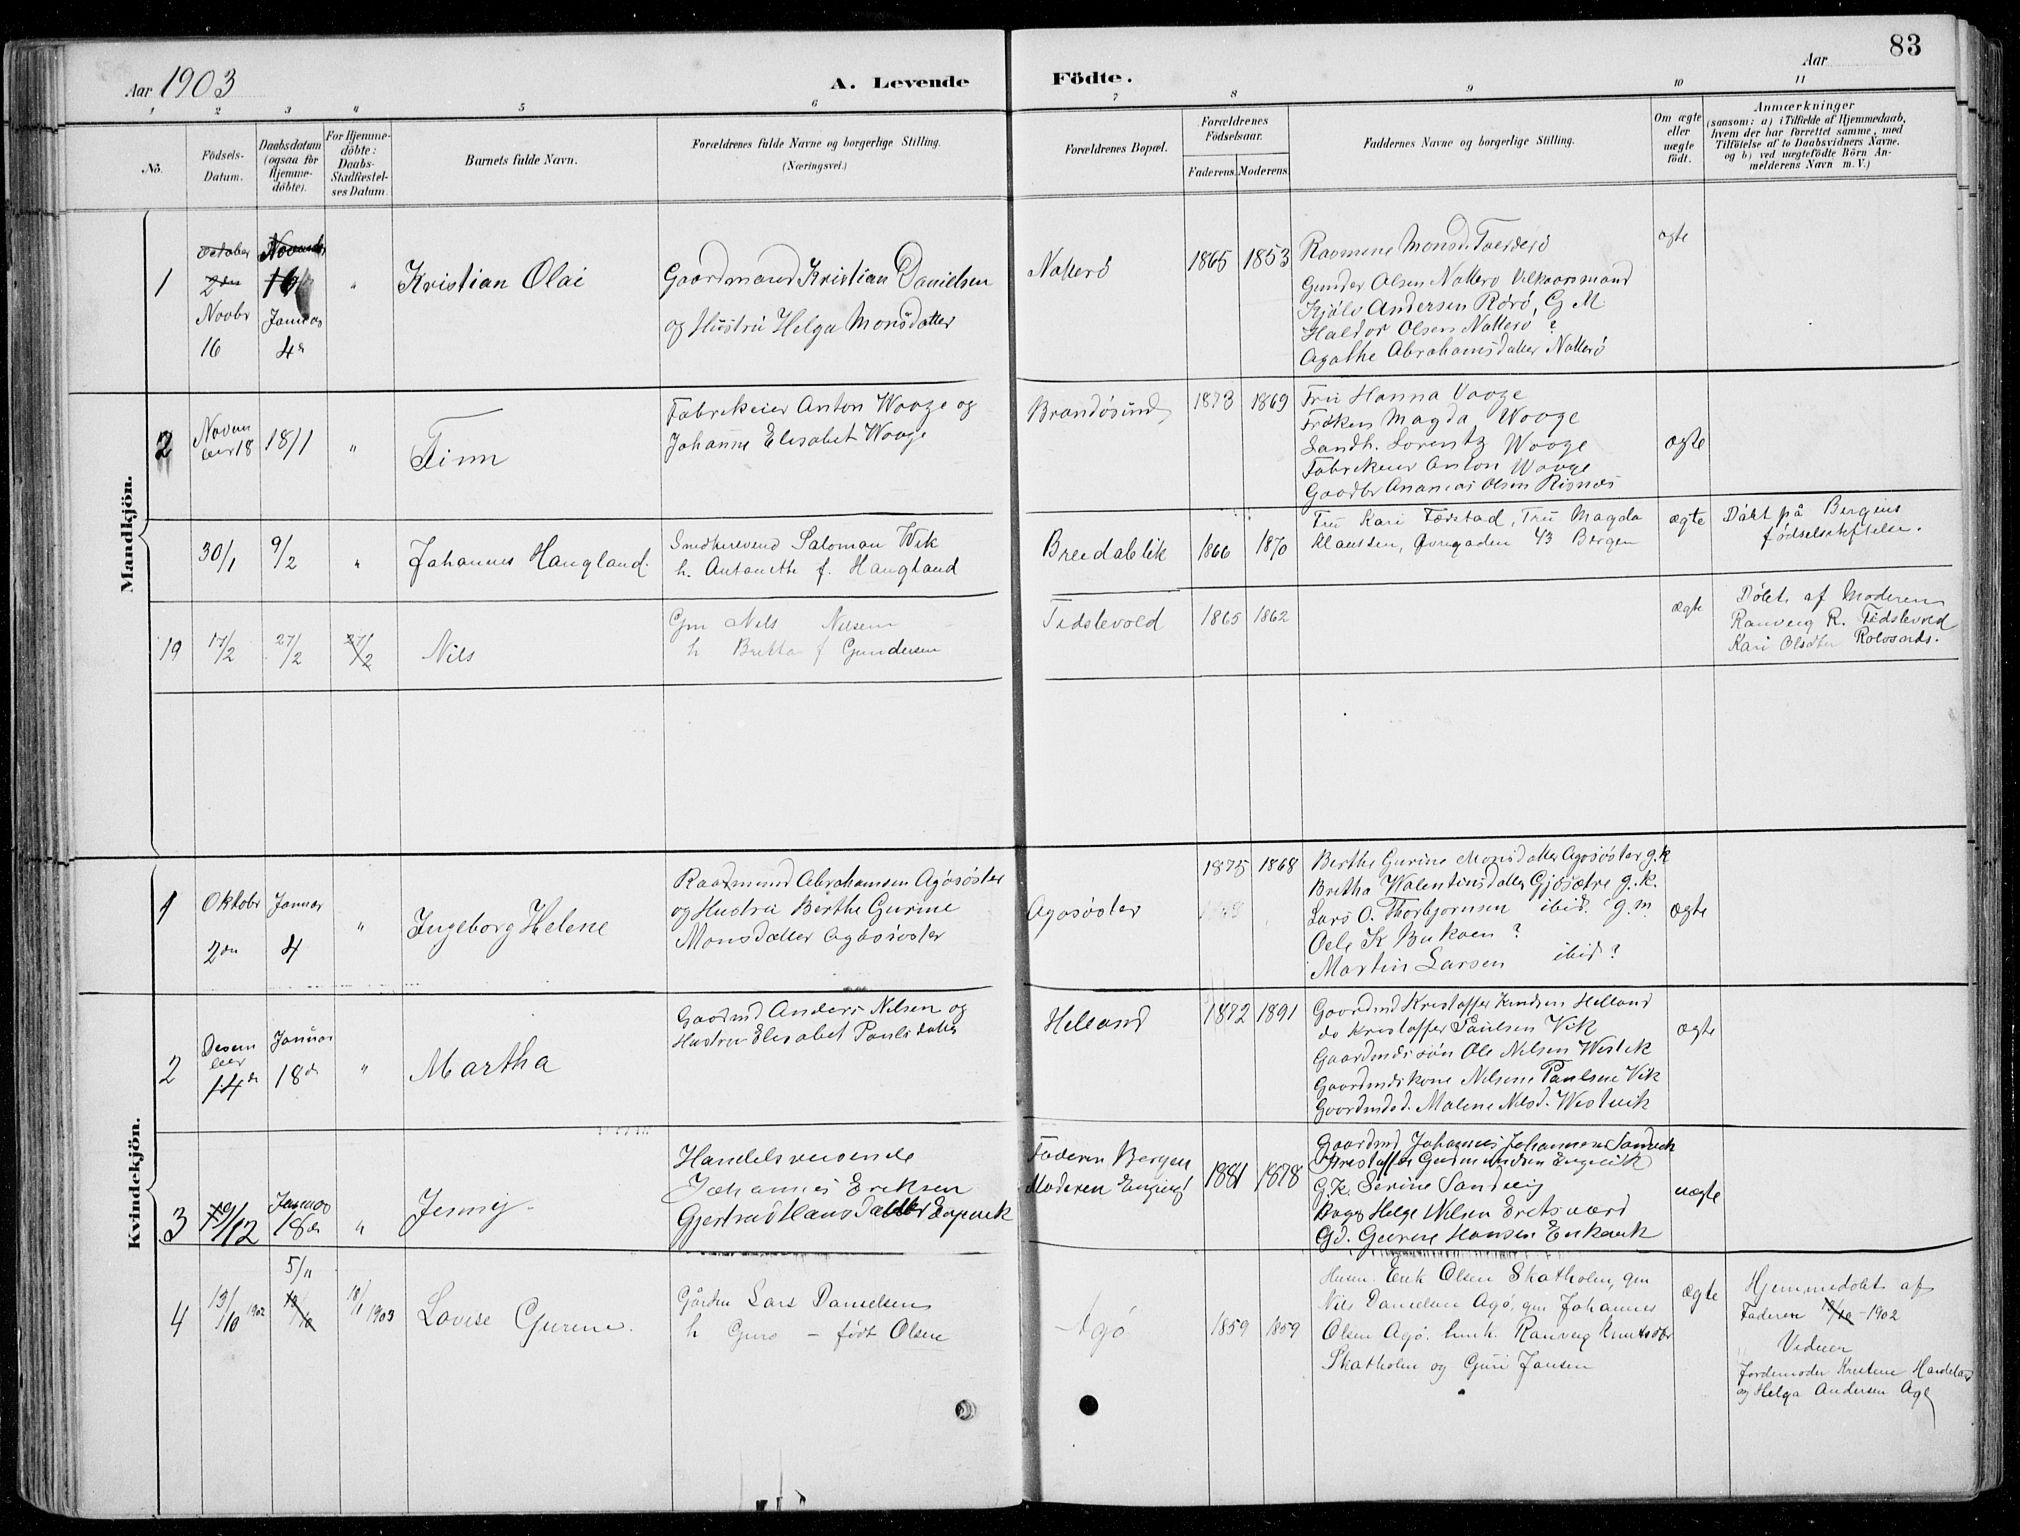 Aar 1903
A. Levende Födte.
Aar
83
1 2 3 4 5 6 7 8 9 10 11
No.
Födsels-Datum.
Daabsdatum (ogsaa for Hjemme-döbte).
For Hjemme-döbte: Daabs-Stadfæstel-ses Datum.
Barnets fulde Navn.
Forældrenes fulde Navne og borgerlige Stilling.
(Næringsvei.)
Forældrenes Bopæl.
Forældrenes Födselsaar.
Faderens. Moderens.
Faddernes Navne og borgerlige Stilling.
Om ægte eller uægte födt.
Anmærkninger
(saasom: a) i Tilfælde af Hjemmedaab,
hvem der har forrettet samme, med
Tilföielse af to Daabsvidners Navne,
og b) ved uægtefödte Börn An-
melderens Navn m. V.)
Mandkjön.
1
October 2den Novbr 16
16 Januar 4de
"
Kristian Olai
Gaardmand Kristian Danielsen
og Hustru Helga Monsdatter
Natterö
1865 1853
Rasmine Monsd.
Gunder Olsen Natterö Vilkaarsmand
Kjöls Andersen Rörö, G M
Haldor Olsen Natterö ?
Agathe Abrahamsdatter Natterö
ægte
2
Novem ber 18
18/1
"
Finn
Fabrikeier Anton Waage og
Johanne Elisabet Waage
Brandösund
1873 1869
Fru Hanna Vaage
Fröken Magda Waage
Landh. Lorentz Waage
Fabrikeier Anton Waage
Gaardbr Ananias Olsen Risnes
ægte
30/1
9/2
"
Johannes Haugland.
Snedkersvend Salomon Wik
h. Antonette f. Haugland
Breidablik
1866 1870
Fru Kari Færstad, Fru Magda
Klaussen, Øvregaden 43 Bergen
ægte
Döbt på Bergens
födselsstiftelse.
19
17/2
27/2
27/2
Nils
Gm Nils Nilsen
h Britta f Gundersen
Tidslevold
1865 1862
ægte
Döbt af Moderen
Ranveig R. Tidslevold
Kari Olsdtr
Kvindekjön.
1
Oktobr 2den
Januar 4
"
Ingeborg Helene
Abrahamsen Agösöster
og Hustru Berthe Gurine
Monsdatter Agösöster
Agosöster
1875 1868
Berthe Gurine Monsdatter Agosöster g.k
Bretha Walentinsdatter Gjösætre g.k.
Lars O. Thorbjornsen ibid. g.m
Ole K Bukaen ?
Martin Larsen ibid ?
ægte
2
Desem ber 14de
Januar 18de
"
Martha
Gaardmd Anders Nilsen og
Hustru Elisabet Paulsdatter
Helland
1872 1891
Gaardmd Kristoffer Knudsen Helland
do Kristoffer Paulsen Vik
Gaardmds sön Ole Nilsen Westvik
Gaardmdskone Nilsine Paulsen Vik
Gaardmdsd. Malene Nilsd. Westvik
ægte
3
19/12
Januar 18de
"
Jenny
Handelsreisende
Johannes Eriksen
Gjertrud Hansdatter Engevik
Faderen Bergen
Moderen Engevik
1881 1878
Gaardmd Johannes Johannesen Sandvik
Kristoffer Gudmundsen Engevik
G.K. Serine Sandvig
Helge Nilsen
Gd. Gurine Hansen
uægte
4
13/10 1902
5/11 13/10
18/1 1903
Lovise Gurine.
Gården Lars Danielsen
h Guro - født Olsen
Agö
1859 1859
Husm. Erik Olsen Skatholm, gm
Nils Danielsen Agö, gm Johannes
Olsen Agö. husk. Ranveig Knutsdtr
Skatholm og Guri Jansen
ægte
Hjemmedöbt af
Faderen 13/10 - 1902
Vidner
Jordemoder Kristine
og Helga Andersen Agö